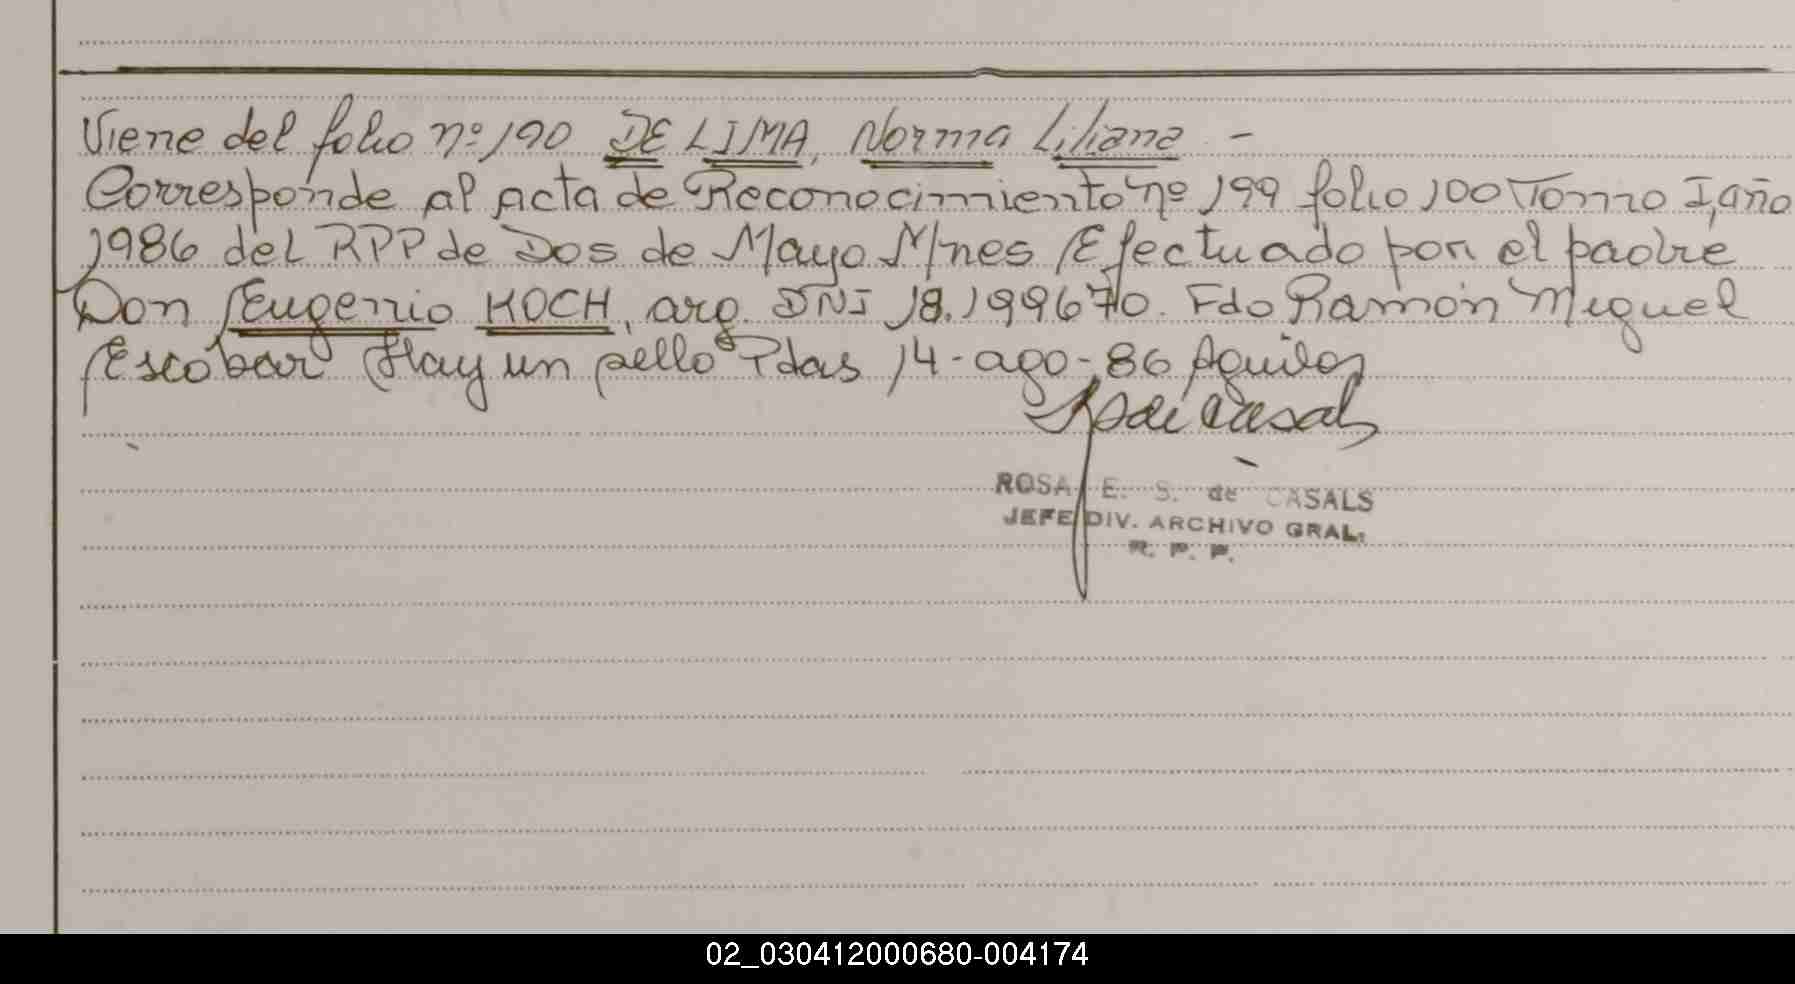 Viene del folio nº 190 DE LIMA, Norma Liliana -
Corresponde al acta de Reconocimiento nº 199 folio 100 Tomo I, año
1986 del RPP de Dos de Mayo Mnes Efectuado por el padre
Don Eugenio KOCH, arg. DNI 18.199670. Fdo Ramón Miguel
Escobar Hay un sello Pdas 14-ago-86 Aguilar
ROSA E. S. de CASALS
JEFE DIV. ARCHIVO GRAL.
R. P. P.
02_030412000680-004174